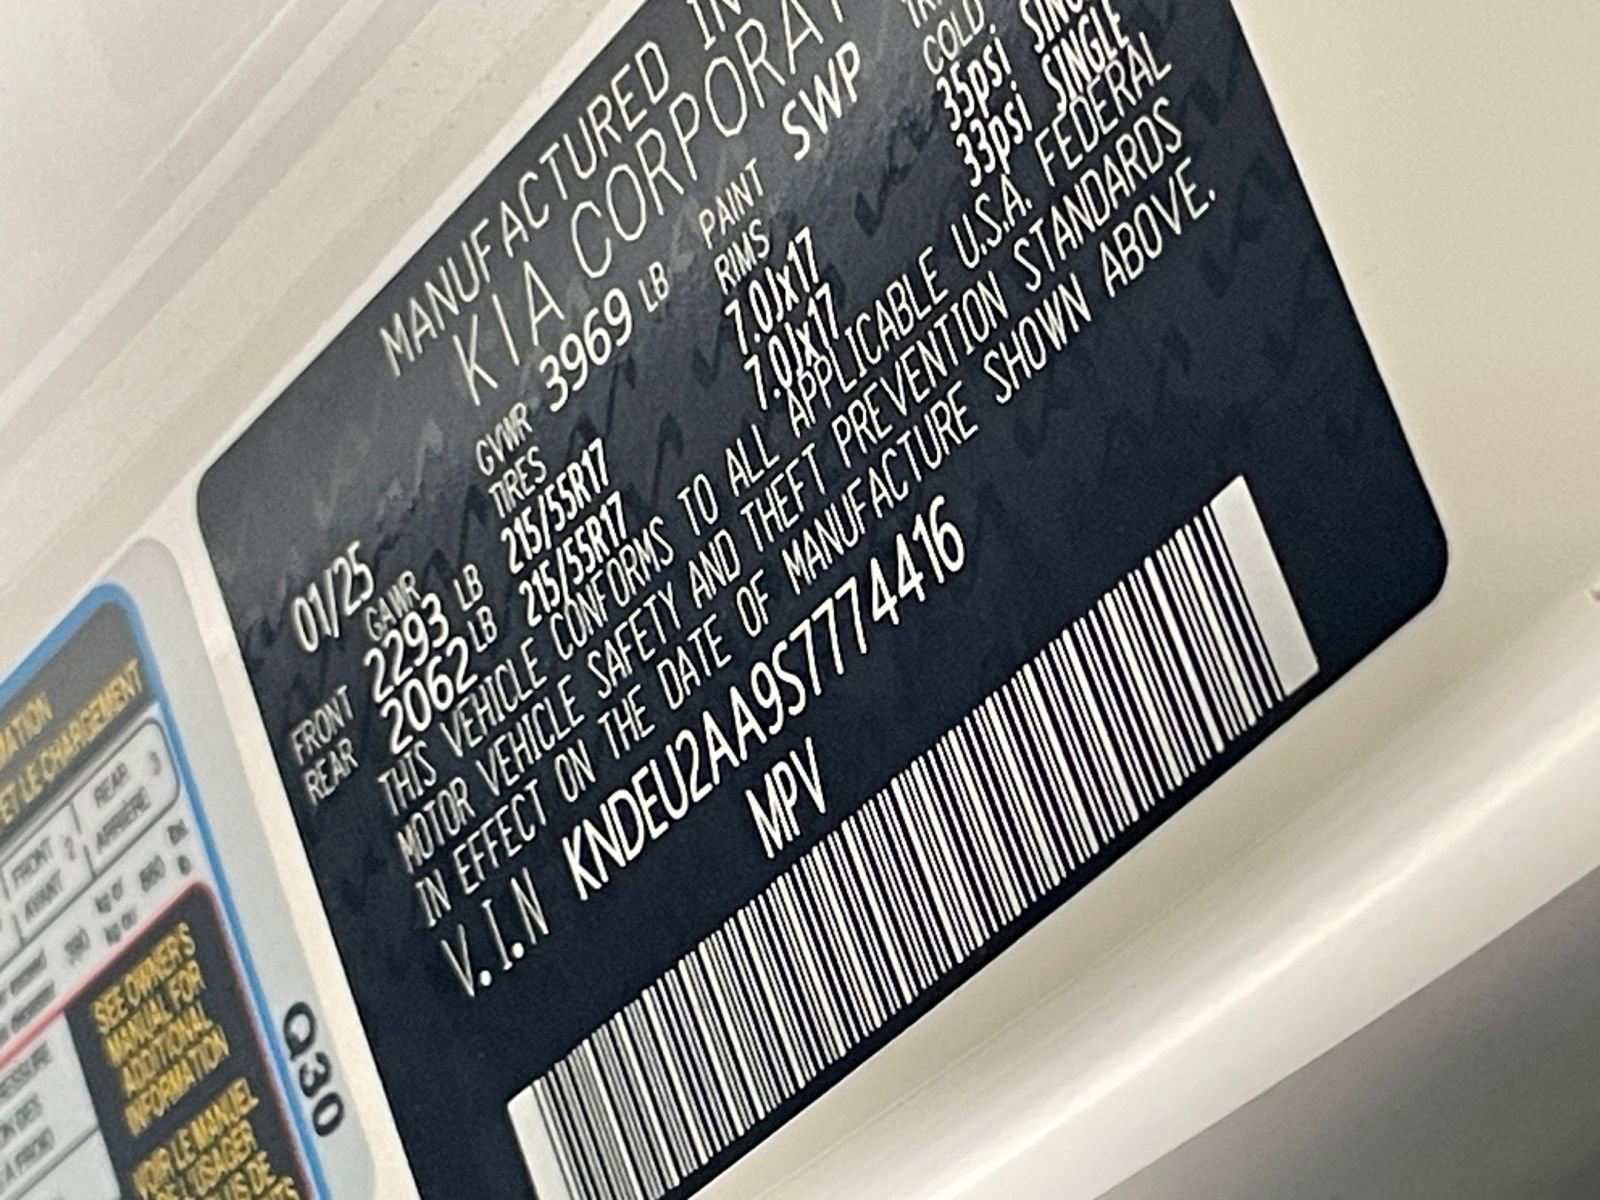 MANUFACTURED IN
KIA CORPORAT
01/25 GVWR 3969 LB PAINT SWP
GAWR TIRES RIMS COLD
FRONT 2293 LB 215/55R17 7.0Jx17 35psi SINGLE
REAR 2062 LB 215/55R17 7.0Jx17 33psi SINGLE
THIS VEHICLE CONFORMS TO ALL APPLICABLE U.S.A. FEDERAL
MOTOR VEHICLE SAFETY AND THEFT PREVENTION STANDARDS
IN EFFECT ON THE DATE OF MANUFACTURE SHOWN ABOVE.
V.I.N KNDEU2AA9S7774416
MPV
MATION
ET LE CHARGEMENT
FRONT 2 REAR 3
AVANT ARRIÈRE
SEE OWNER'S
MANUAL FOR
ADDITIONAL
INFORMATION
VOIR LE MANUEL
L'USAGER
PLUS DE
Q30